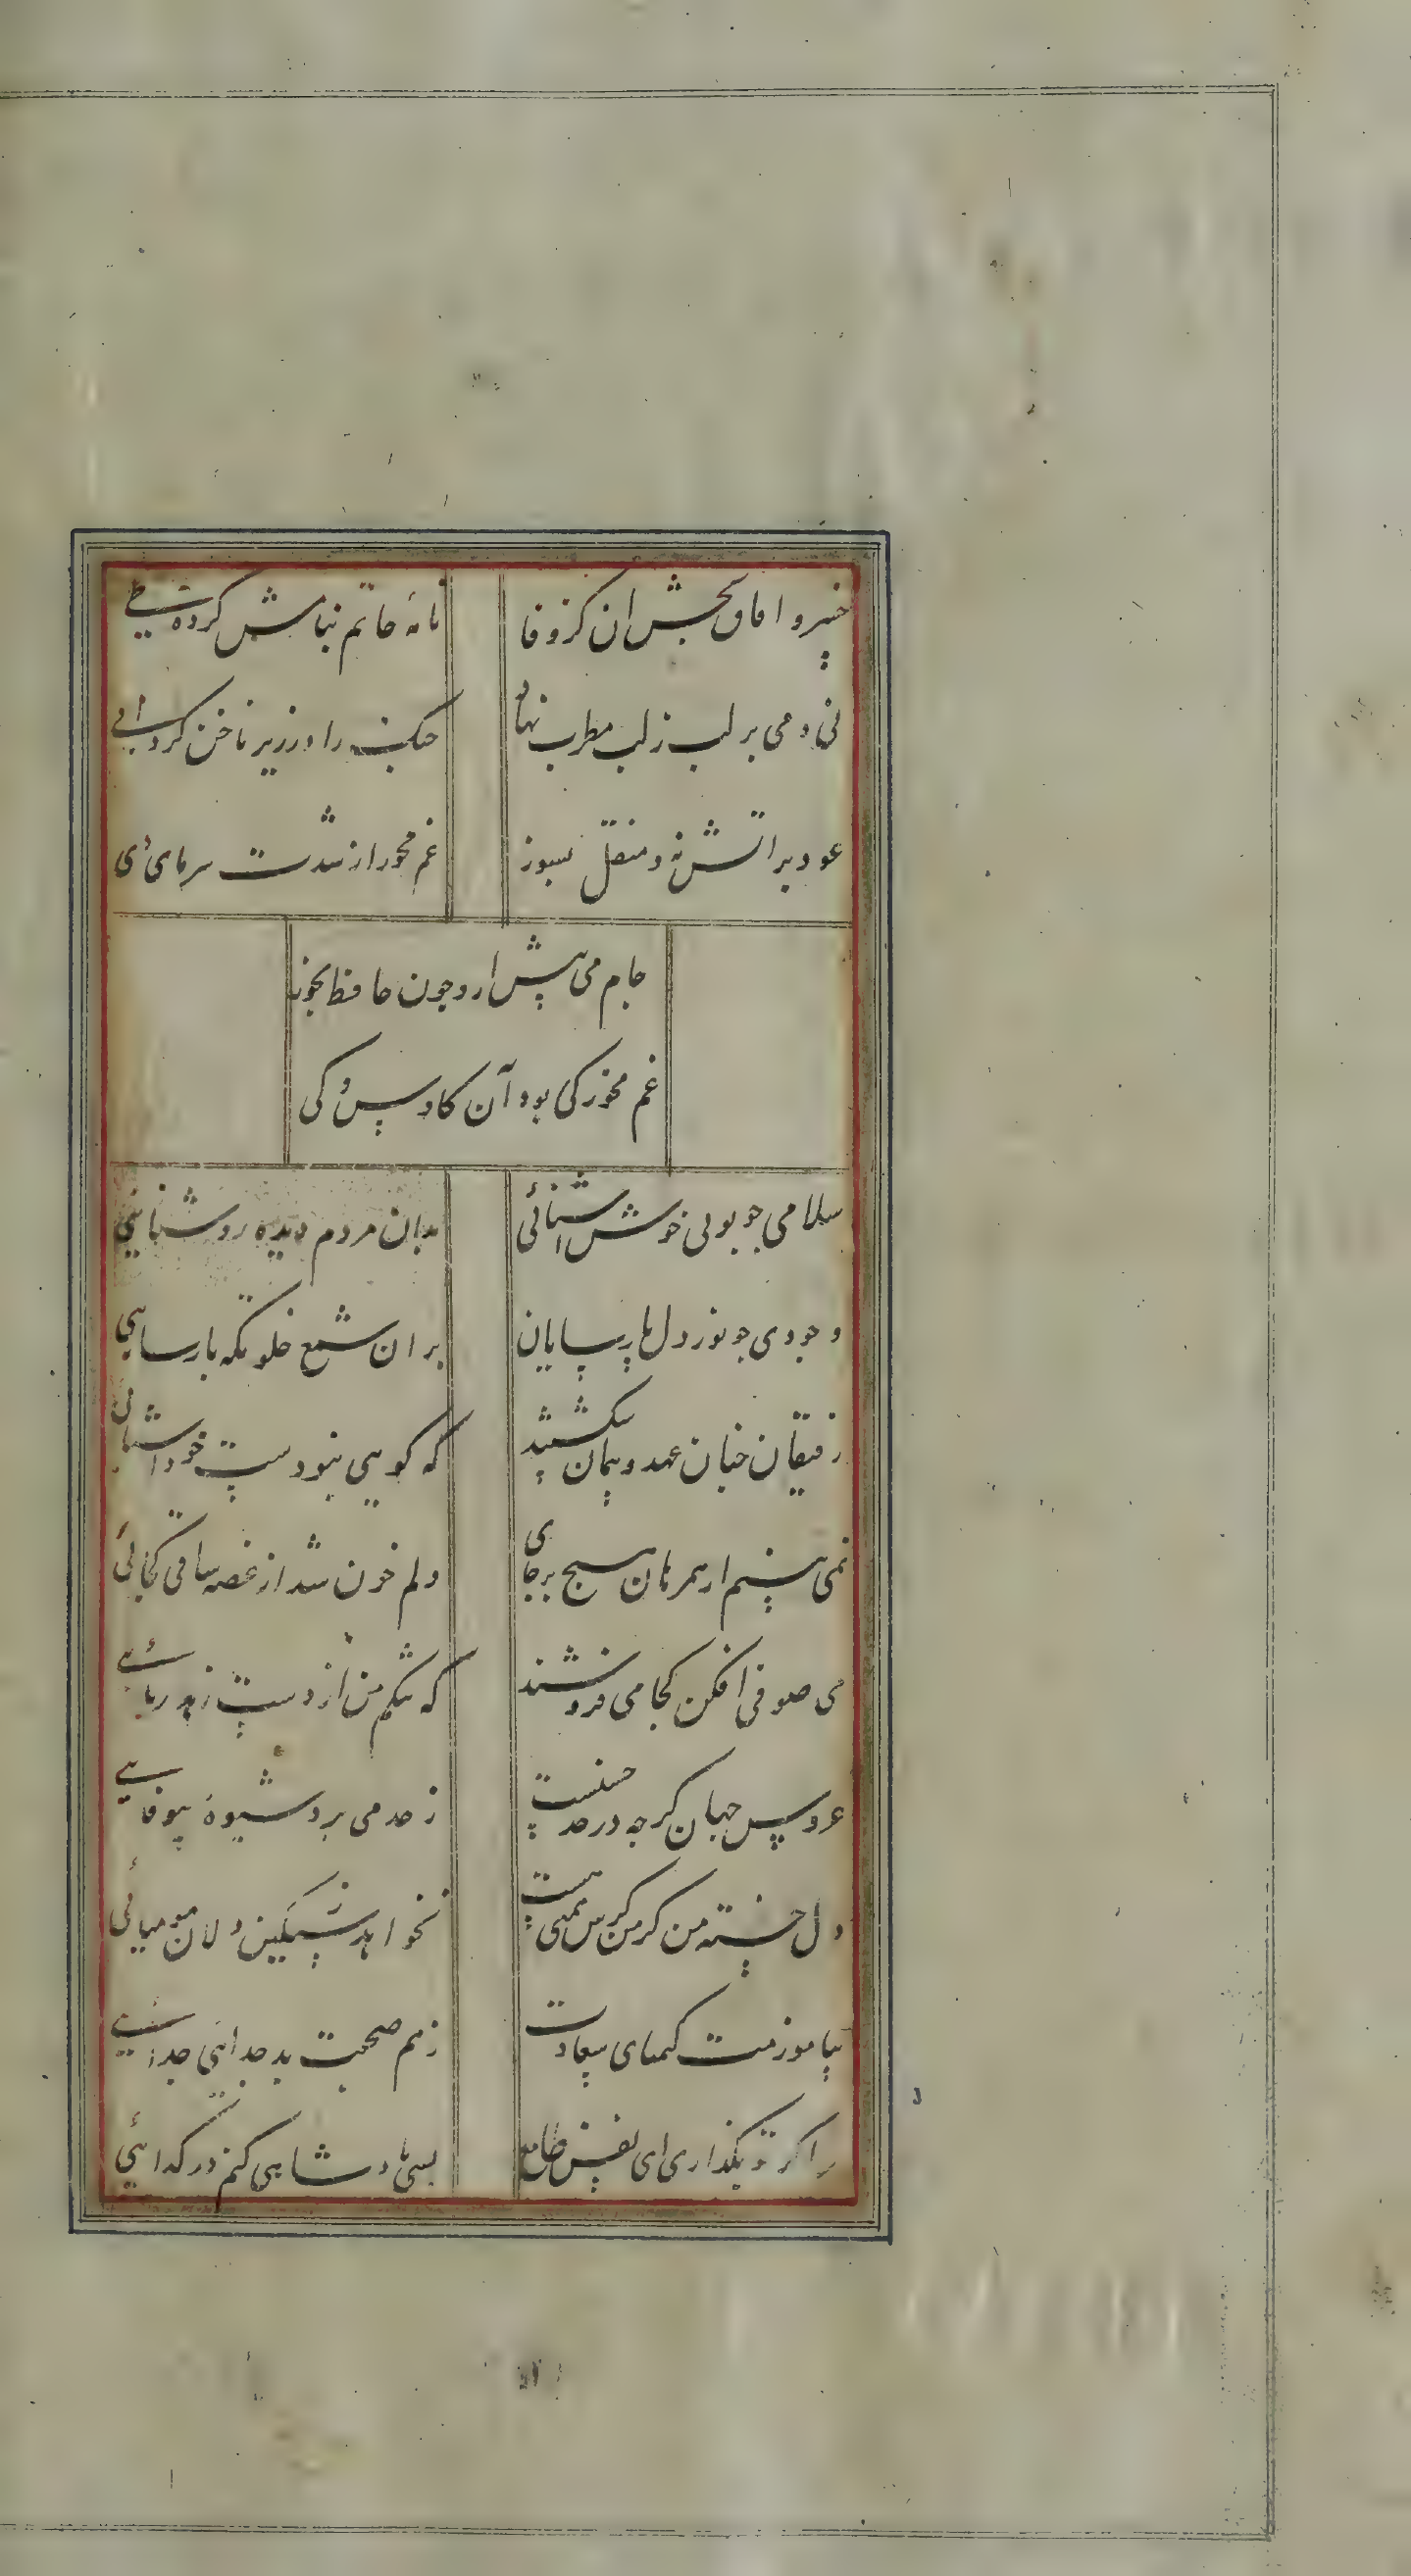 خسرو افاق بخش ان کز وفا
نامهٔ حاتم بنامش کرده طی
نی و می بر لب ز لب مطرب نهاد
چنک را در زیر ناخن کرد نی
عود بر اتش نه و منقل بسوز
غم مخور از شدت سرمای دی
جام می پیش ار و چون حافظ بخور
غم مخور کی بود آن کاوس و کی
سلامی چو بوی خوش اشنائی
بدان مردم دیده روشنایی
وجودی چو نور دل پارسایان
بر ان شمع خلوتکه پارسایی
رفیقان چنان عهد و پیمان شکستند
که کویی نبودست خود اشنائی
نمی بینم از همرهان هیچ بر جای
دلم خون شد از غصه ساقی کجائی
می صوفی افکن کجا می فروشند
که تنکم من از دست زهد ریائی
عروس جهان کرچه در حد حسنست
ز حد می برد شیوهٔ بیوفایی
دل خسته من کرش همتی هست
نخواهد ز سنکین دلان مومیائی
بیاموزمت کیمیای سعادت
ز هم صحبت بد جدایی جدائی
مرا کر تو بکذاری ای نفس طامع
بسی پادشاهی کنم در کدائی